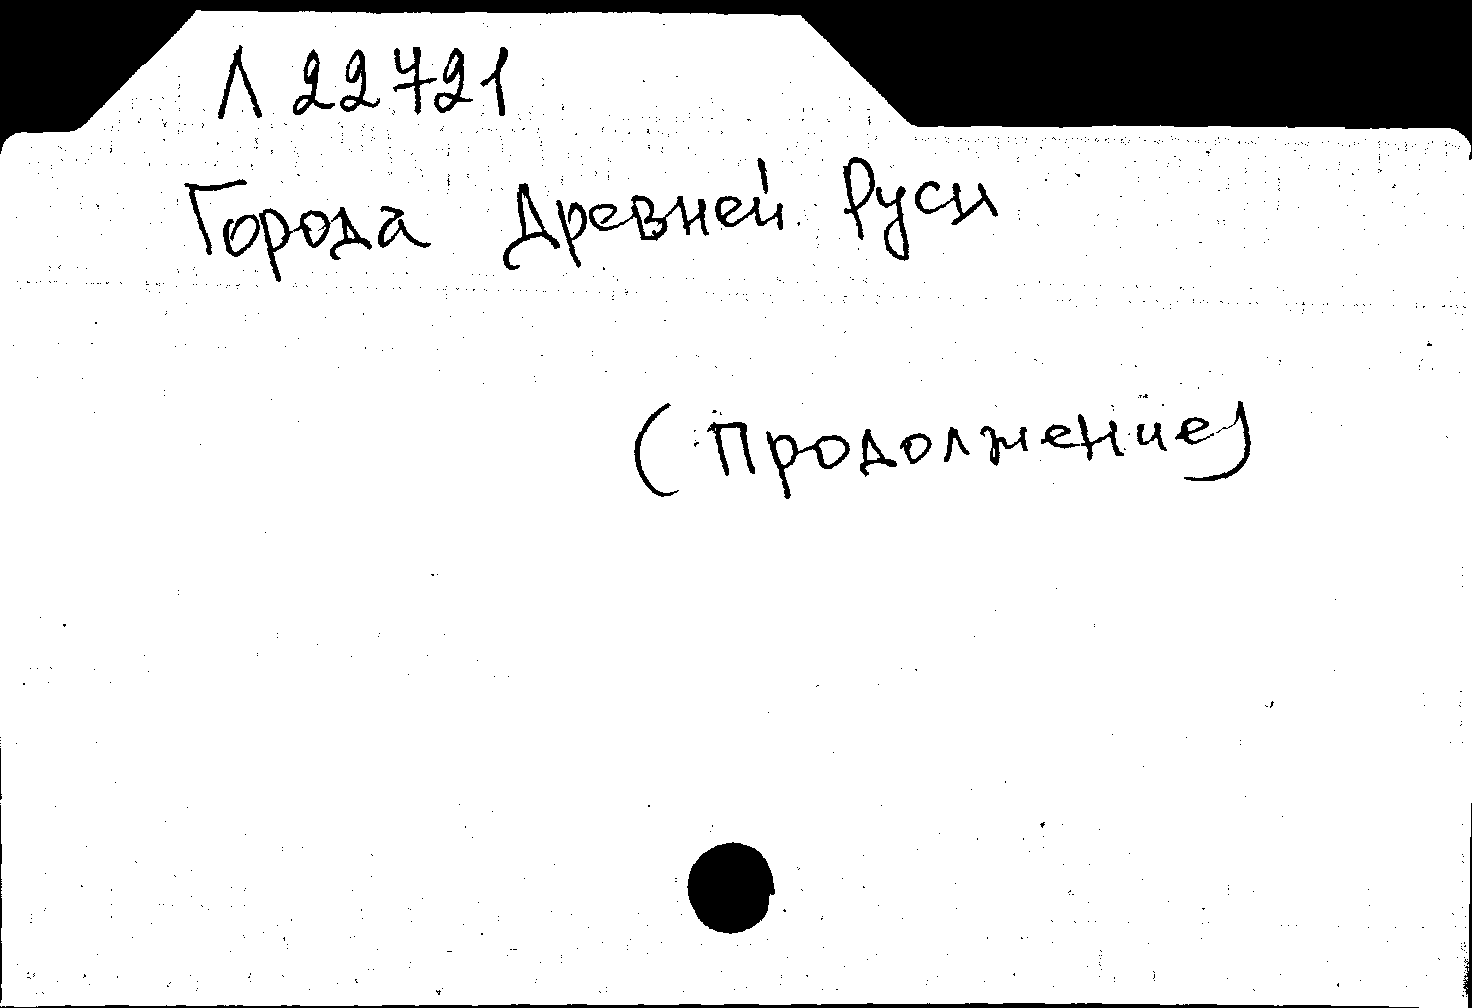 Л 22721
Города Древней Руси
(Продолжение)